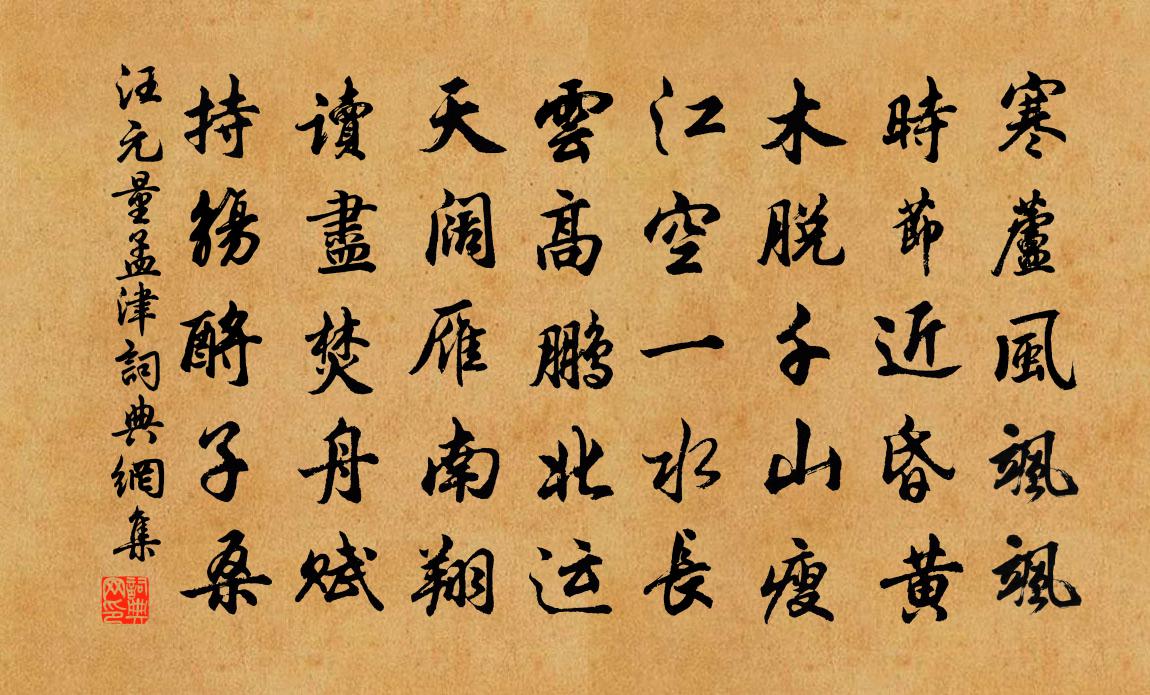 寒蘆風颯颯
時節近昏黃
木脫千山瘦
江空一水長
雲高鵬北运
天闊雁南翔
讀盡焚舟賦
持觴酹子桑
汪元量孟津詞典網集
詞典网印